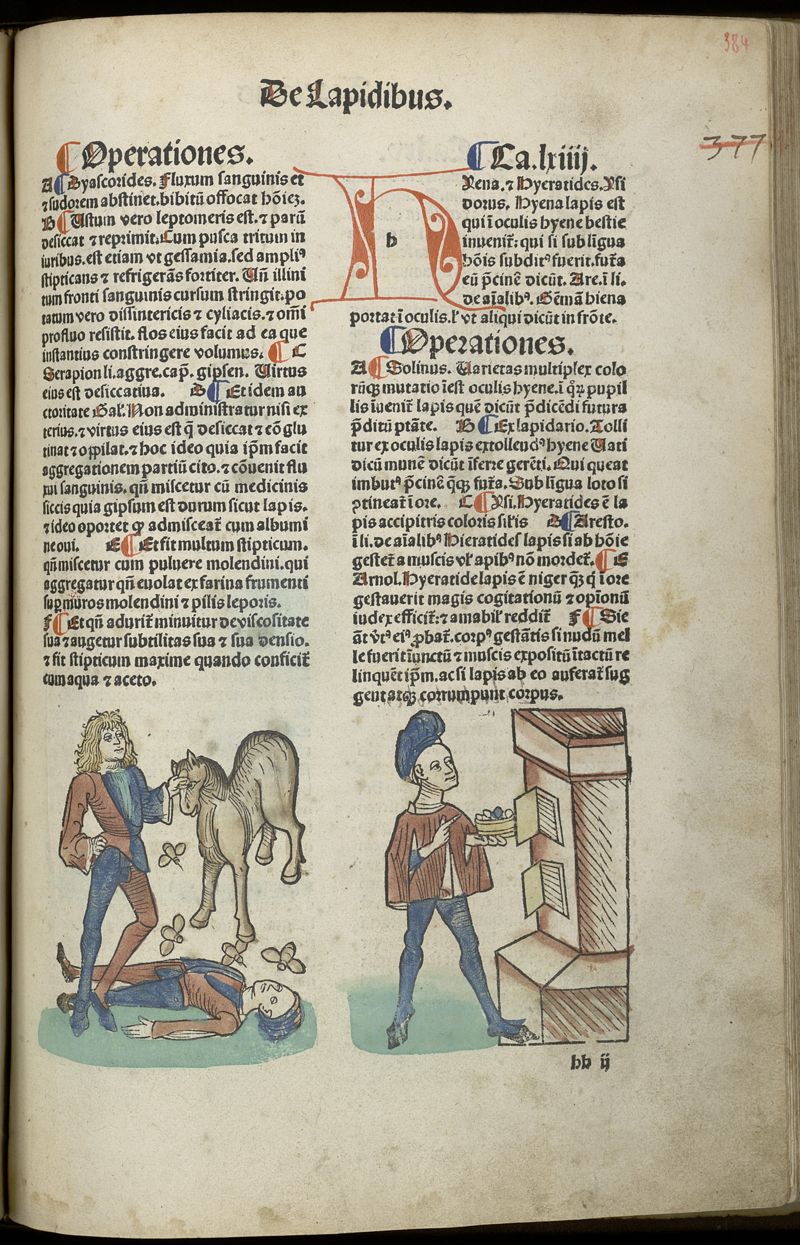 384
377
De Lapidibus.
Operationes.
A Dyascorides. Fluxum sanguinis et
⁊ sudorem abstinet. bibitū offocat hōiez.
B Ustum vero leptomeris est. ⁊ parū
desiccat ⁊ reprimit. Cum pusca tritum in
iuribus. est etiam vt gessamia. sed ampliꝰ
stipticans ⁊ refrigerās fortiter. Uñ illini
tum fronti sanguinis cursum stringit. po
tatum vero dissintericis ⁊ cyliacis. ⁊ omī
profluo resistit. flos eius facit ad ea que
instantius constringere volumus. C
Serapion li. aggre. cap̄. gipsen. Uirtus
eius est desiccatiua. D Et idem au
ctoritate Gal'. Non administratur nisi ex
terius. ⁊ virtus eius est q̄ desiccat ⁊ cōglu
tinat ⁊ opilat. ⁊ hoc ideo quia ip̄m facit
aggregationem partiū cito. ⁊ cōuenit flu
xui sanguinis. qñ miscetur cū medicinis
siccis quia gipsum est durum sicut lapis.
⁊ ideo oportet ꝙ admisceat̄ cum albumi
ne oui. E Et fit multum stipticum.
qñ miscetur cum puluere molendini. qui
aggregatur qñ euolat ex farina frumenti
sup muros molendini ⁊ pilis leporis.
F Et qñ adurit̄ minuitur de viscositate
sua ⁊ augetur subtilitas sua ⁊ sua densio.
⁊ fit stipticum maxime quando conficit̄
cum aqua ⁊ aceto.
Ca. lxiiij.
h
Yena. ⁊ Hyeratides. Ysi
dorus. Hyena lapis est
qui ī oculis hyene bestie
inuenit̄: qui si sub līgua
hōis subditꝰ fuerit. fut̄a
eū p̄cinē dicūt. Are. ī li.
de aīalibꝰ. Gēmā hiena
portat ī oculis. l' vt aliqui dicūt in frōte.
Operationes.
A Solinus. Uarietas multiplex colo
rūqꝫ mutatio īest oculis hyene. ī qꝝ pupil
lis īuenit̄ lapis quē dicūt p̄dicēdi futura
p̄ditū ptāte. B Ex lapidario. Tolli
tur ex oculis lapis extollendꝰ hyene Uati
dicū munē dicūt īsere gerēti. Qui queat
imbutꝰ p̄cinē qꝫqꝫ fut̄a. Sub līgua loto si
ptineat ī ore. C Ysi. Hyeratides ē la
pis accipitris coloris sil'is D Aresto.
ī li. de aīalibꝰ Hieratides lapis si ab hōie
gestet̄ a muscis vl' apibꝰ nō mordet̄. E
Arnol. Hyeratide lapis ē niger qꝫ q̄ ī ore
gestauerit magis cogitationū ⁊ opīonū
iudex efficit̄: ⁊ amabil' reddit̄ F Sic
āt vt̄ꝰ eiꝰ probat̄. corpꝰ gestātis si nudū mel
le fuerit īunctū ⁊ muscis expositū ītactū re
linquēt ip̄m. ac si lapis ab eo auferat̄ sug
gent atqꝫ corrumpunt corpus.
bb ij